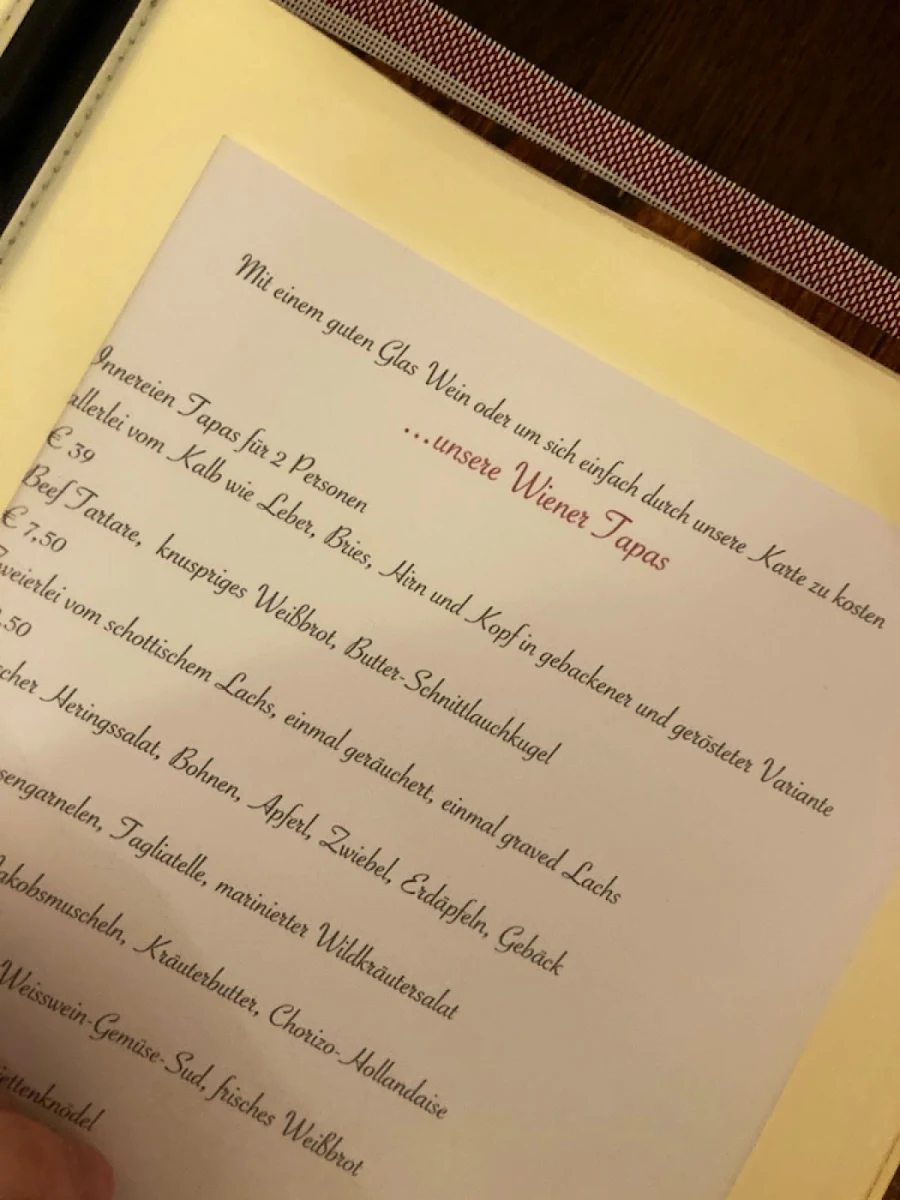 Mit einem guten Glas Wein oder um sich einfach durch unsere Karte zu kosten
...unsere Wiener Tapas
Innereien Tapas für 2 Personen
allerlei vom Kalb wie Leber, Bries, Hirn und Kopf in gebackener und gerösteter Variante
€ 39
Beef Tartare, knuspriges Weißbrot, Butter-Schnittlauchkugel
€ 7,50
Zweierlei vom schottischem Lachs, einmal geräuchert, einmal graved Lachs
,50
scher Heringssalat, Bohnen, Apferl, Zwiebel, Erdäpfeln, Gebäck
sengarnelen, Tagliatelle, marinierter Wildkräutersalat
akobsmuscheln, Kräuterbutter, Chorizo-Hollandaise
Weisswein-Gemüse-Sud, frisches Weißbrot
iettenknödel